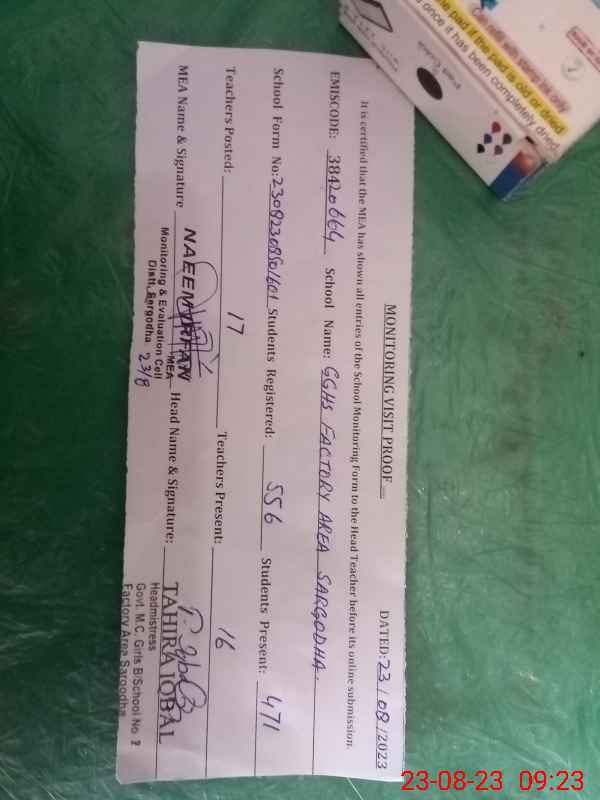 MONITORING VISIT PROOF
DATED: 23/08/2023
It is certified that the MEA has shown all entries of the School Monitoring Form to the Head Teacher before its online submission.
EMISCODE: 38420664 School Name: GGHS FACTORY AREA SARGODHA.
School Form No: 23082308501601 Students Registered: 556 Students Present: 471
Teachers Posted: 17 Teachers Present: 16
MEA Name & Signature NAEEM IRFAN Head Name & Signature: TAHIRA IQBAL
MEA
Monitoring & Evaluation Cell
Distt. Sargodha
23/8
Headmistress
Govt. M.C. Girls B/School No
Factory Area Sargodha
the pad if the pad is old or dried
once it has been completely dried
refill with stamp ink only
23-08-23 09:23